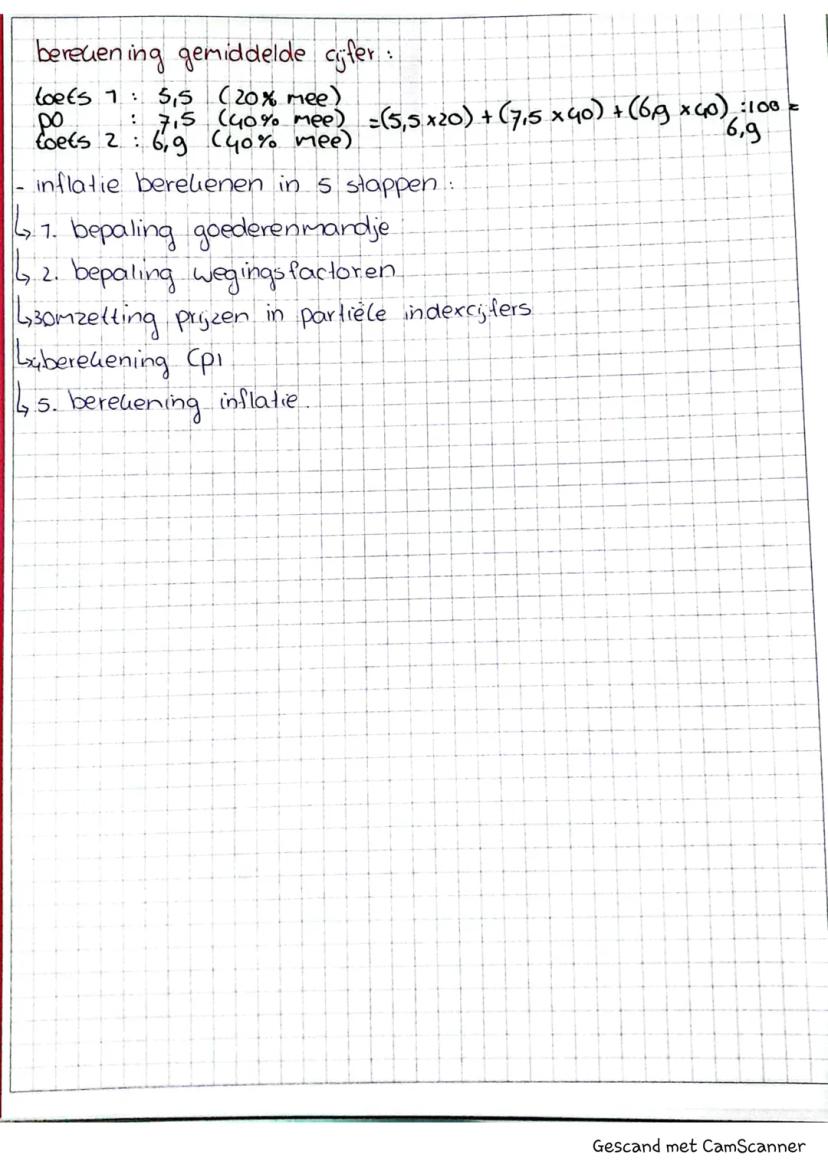 berekening gemiddelde cijfer :
toets 1 : 5,5 (20% mee)
PO : 7,5 (40% mee) =(5,5 x20) + (7,5 x 40) + (6,9 x 40) :100 =
6,9
toets 2 : 6,9 (40% mee)
- inflatie berekenen in 5 stappen :
↳ 1. bepaling goederenmandje
↳ 2. bepaling wegingsfactoren
↳3omzetting prijzen in partiële indexcijfers
↳4berekening CPI
↳ 5. berekening inflatie.
Gescand met CamScanner